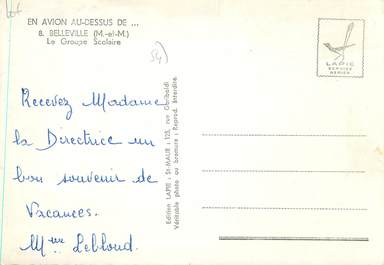 Lot
EN AVION AU-DESSUS DE ...
8. BELLEVILLE (M.-et-M.)
Le Groupe Scolaire
54
LAPIE
SERVICE
AERIEN
Recevez Madame
la Directrice un
bon souvenir de
Vacances.
Mme Leblond.
Edition LAPIE : St-MAUR : 125, rue Garibaldi
Véritable photo au bromure : Reprod. Interdite.